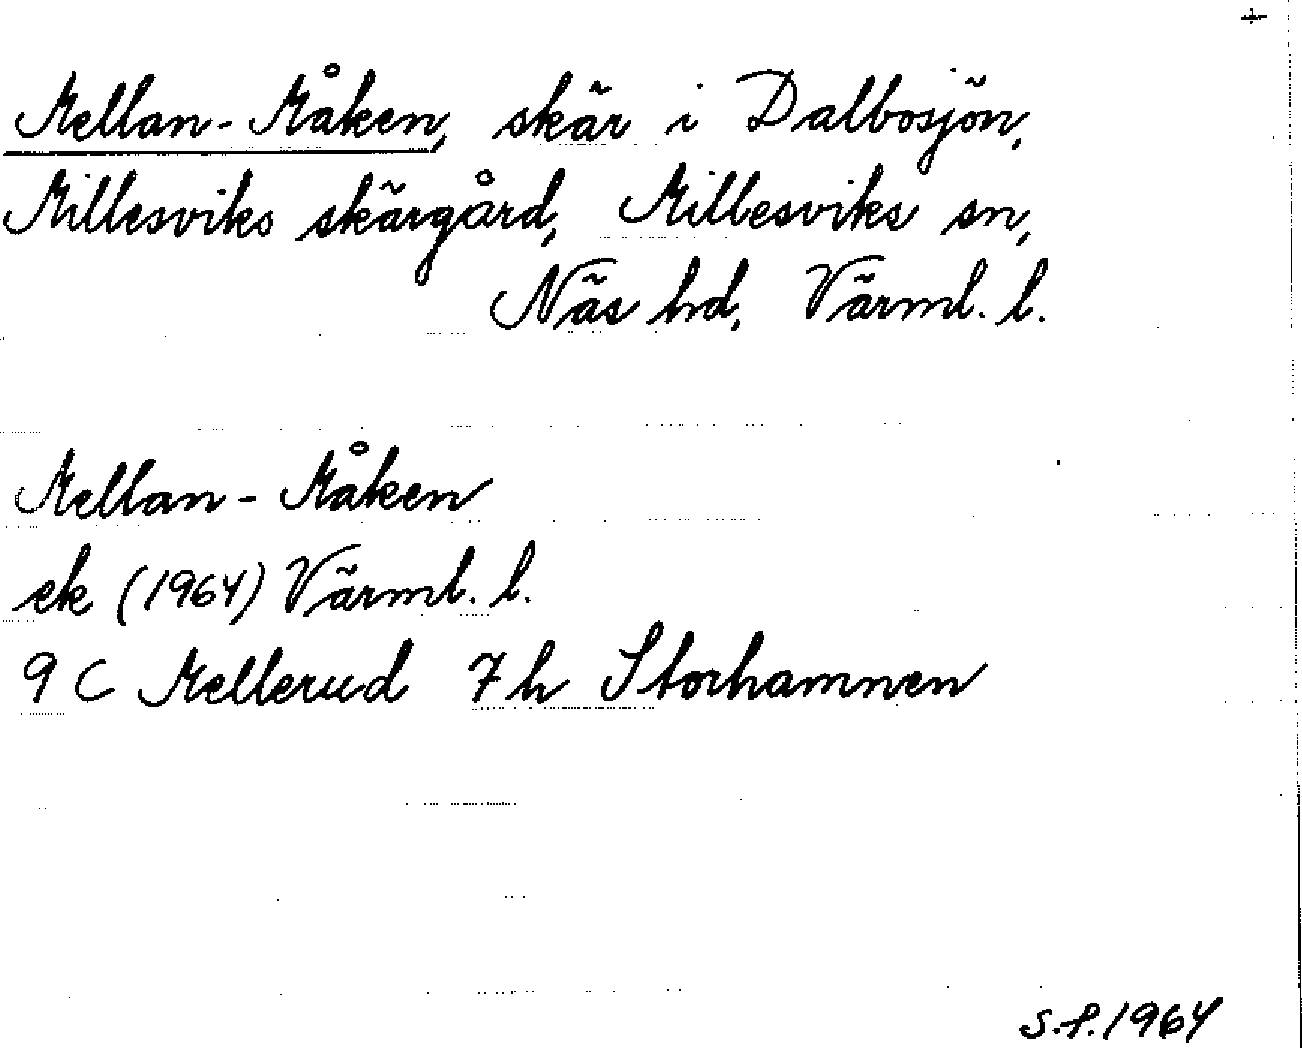 Mellan-Måken, skär i Dalbosjön,
Millesviks skärgård, Millesviks sn,
Näs hd, Värml. l.
Mellan-Måken
ek (1964) Värml. l.
9 C Mellerud 7 h Storhamnen
S.P. 1964